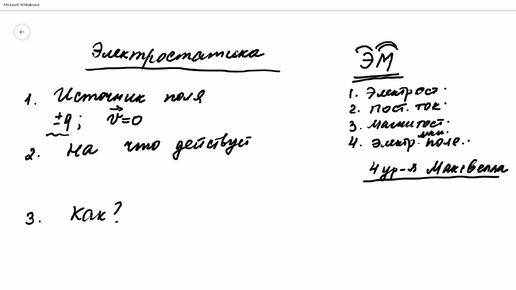 Microsoft Whiteboard
Электростатика
1. Источник поля
±q; v=0
2. На что действует
3. Как?
ЭМ
1. Электрост.
2. Пост. ток.
3. Магнитост.
маг.
4. Электр. поле..
4 ур-я Максвелла